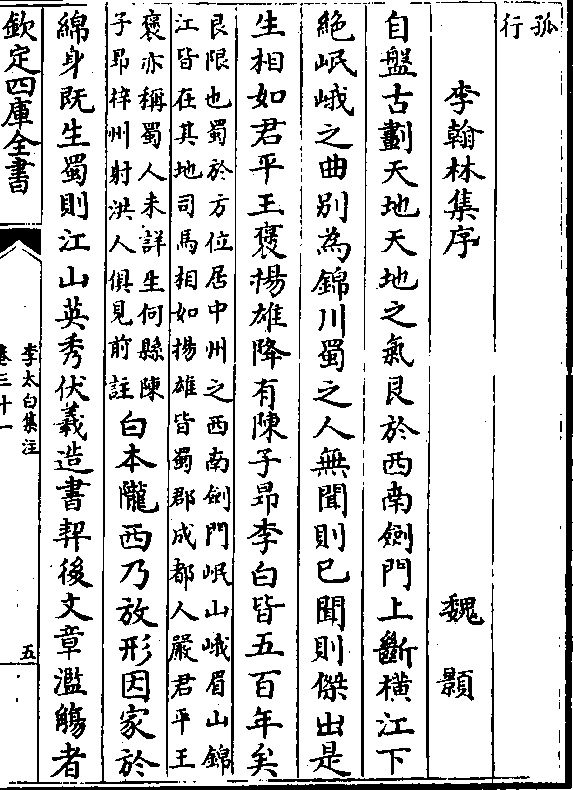 孤
行
李翰林集序
魏顥
自盤古劃天地天地之氣艮於西南劍門上斷橫江下
絶岷峨之曲别為錦川蜀之人無聞則已聞則傑出是
生相如君平王褒揚雄降有陳子昻李白皆五百年矣
艮限也蜀於方位居中州之西南劍門岷山峨眉山錦
江皆在其地司馬相如揚雄皆蜀郡成都人嚴君平王
褒亦稱蜀人未詳生何縣陳
子昻梓州射洪人俱見前註
白本隴西乃放形因家於
綿身既生蜀則江山英秀伏羲造書契後文章濫觴者
欽定四庫全書
李太白集注
卷三十一
五